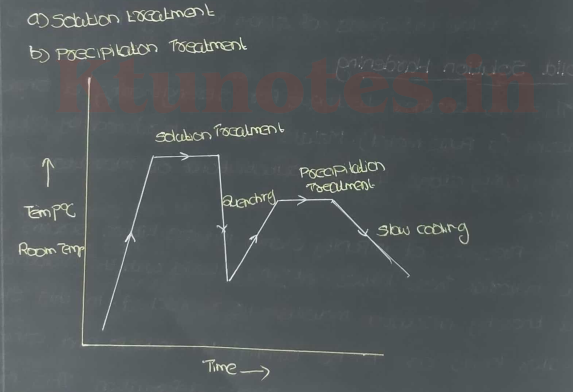 a) Solution treatment
b) Precipitation Treatment
Ktunotes.in
Solution Treatment
Precipitation
Treatment
Quenching
Temp°C
Room Temp
Slow cooling
Time →